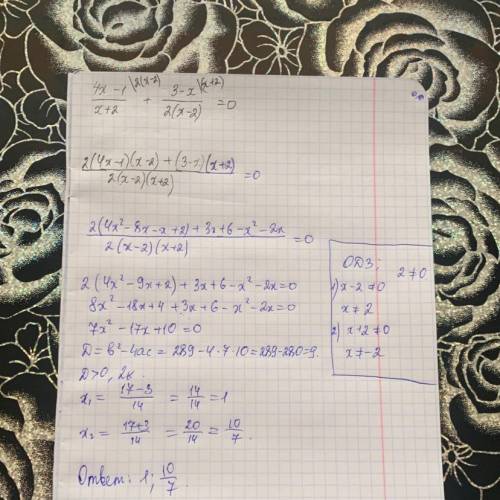 (4x-1)/(x+2) \2(x-2) + (3-x)/(2(x-2)) \(x+2) =0
(2(4x-1)(x-2)+(3-x)(x+2))/(2(x-2)(x+2)) =0
(2(4x²-8x-x+2)+3x+6-x²-2x)/(2(x-2)(x+2)) =0
2(4x²-9x+2)+3x+6-x²-2x=0
8x²-18x+4+3x+6-x²-2x=0
7x²-17x+10=0
D=b²-4ac=289-4·7·10=289-280=9.
D>0, 2к.
x₁=(17-3)/14=14/14=1
x₂=(17+3)/14=20/14=10/7.
Ответ: 1; 10/7.
ОДЗ:
2≠0
1) x-2≠0
x≠2
2) x+2≠0
x≠-2